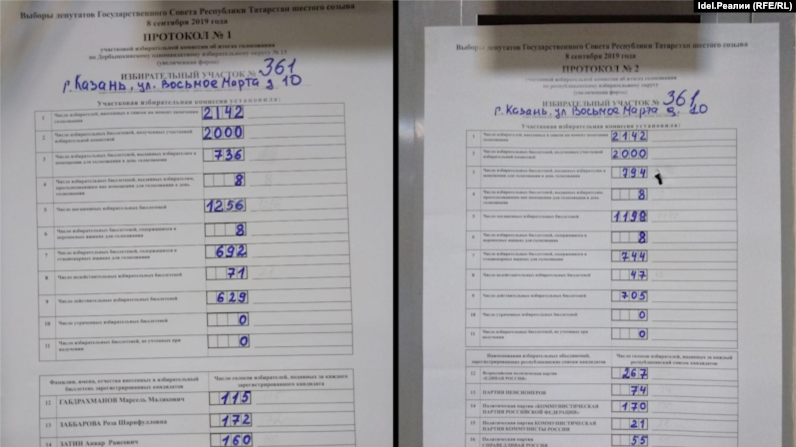 Idel.Реалии (RFE/RL)
Выборы депутатов Государственного Совета Республики Татарстан шестого созыва
8 сентября 2019 года
ПРОТОКОЛ № 1
участковой избирательной комиссии об итогах голосования
по Дербышкинскому одномандатному избирательному округу № 13
(увеличенная форма)
ИЗБИРАТЕЛЬНЫЙ УЧАСТОК № 361
г. Казань, ул. Восьмое Марта д. 10
Участковая избирательная комиссия установила:
1 Число избирателей, внесенных в список на момент окончания голосования 2142
2 Число избирательных бюллетеней, полученных участковой избирательной комиссией 2000
3 Число избирательных бюллетеней, выданных избирателям в помещении для голосования в день голосования 736
4 Число избирательных бюллетеней, выданных избирателям, проголосовавшим вне помещения для голосования в день голосования 8
5 Число погашенных избирательных бюллетеней 1256
6 Число избирательных бюллетеней, содержащихся в переносных ящиках для голосования 8
7 Число избирательных бюллетеней, содержащихся в стационарных ящиках для голосования 692
8 Число недействительных избирательных бюллетеней 71
9 Число действительных избирательных бюллетеней 629
10 Число утраченных избирательных бюллетеней 0
11 Число избирательных бюллетеней, не учтенных при получении 0
Фамилии, имена, отчества внесенных в избирательный бюллетень зарегистрированных кандидатов
Число голосов избирателей, поданных за каждого зарегистрированного кандидата
12 ГАБДРАХМАНОВ Марсель Маликович 115
13 ЗАББАРОВА Роза Шарифулловна 172
14 ЗАТИН Анвар Раисович 160
Выборы депутатов Государственного Совета Республики Татарстан шестого созыва
8 сентября 2019 года
ПРОТОКОЛ № 2
участковой избирательной комиссии об итогах голосования
по республиканскому избирательному округу
(увеличенная форма)
ИЗБИРАТЕЛЬНЫЙ УЧАСТОК № 361
г. Казань, ул. Восьмое Марта д. 10
Участковая избирательная комиссия установила:
1 Число избирателей, внесенных в список на момент окончания голосования 2142
2 Число избирательных бюллетеней, полученных участковой избирательной комиссией 2000
3 Число избирательных бюллетеней, выданных избирателям в помещении для голосования в день голосования 794
4 Число избирательных бюллетеней, выданных избирателям, проголосовавшим вне помещения для голосования в день голосования 8
5 Число погашенных избирательных бюллетеней 1198
6 Число избирательных бюллетеней, содержащихся в переносных ящиках для голосования 8
7 Число избирательных бюллетеней, содержащихся в стационарных ящиках для голосования 744
8 Число недействительных избирательных бюллетеней 47
9 Число действительных избирательных бюллетеней 705
10 Число утраченных избирательных бюллетеней 0
11 Число избирательных бюллетеней, не учтенных при получении 0
Наименования избирательных объединений, зарегистрировавших республиканские списки кандидатов
Число голосов избирателей, поданных за каждый республиканский список кандидатов
12 Всероссийская политическая партия «ЕДИНАЯ РОССИЯ» 267
13 ПАРТИЯ ПЕНСИОНЕРОВ 74
14 Политическая партия «КОММУНИСТИЧЕСКАЯ ПАРТИЯ РОССИЙСКОЙ ФЕДЕРАЦИИ» 170
15 Политическая партия КОММУНИСТИЧЕСКАЯ ПАРТИЯ КОММУНИСТЫ РОССИИ 21
16 Политическая партия СПРАВЕДЛИВАЯ РОССИЯ 55